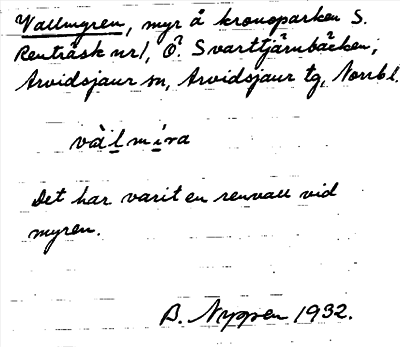 Vallmyren, myr å kronoparken S.
Renträsk nr 1, Ö. Svarttjärnbäcken,
Arvidsjaur sn, Arvidsjaur tg, Norrb l.
vàlmira
Det har varit en renvall vid
myren.
B. Nyppen 1932.